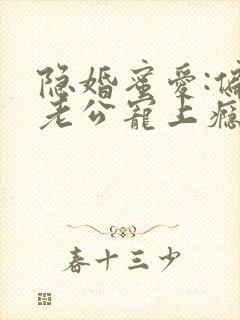 隐婚蜜爱:偏
老公宠上瘾
春十三少